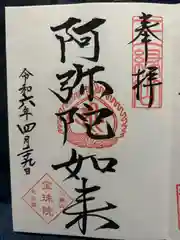 奉拝
阿弥陀如来
令和六年四月二十九日
宝珠院